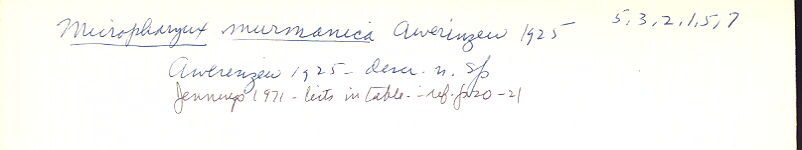 Micropharynx murmanica Awerinzew 1925 5,3,2,1,5,7
Awerinzew 1925 - descr. n. sp
Jennings 1971 - lists in table - ref. p 20-21